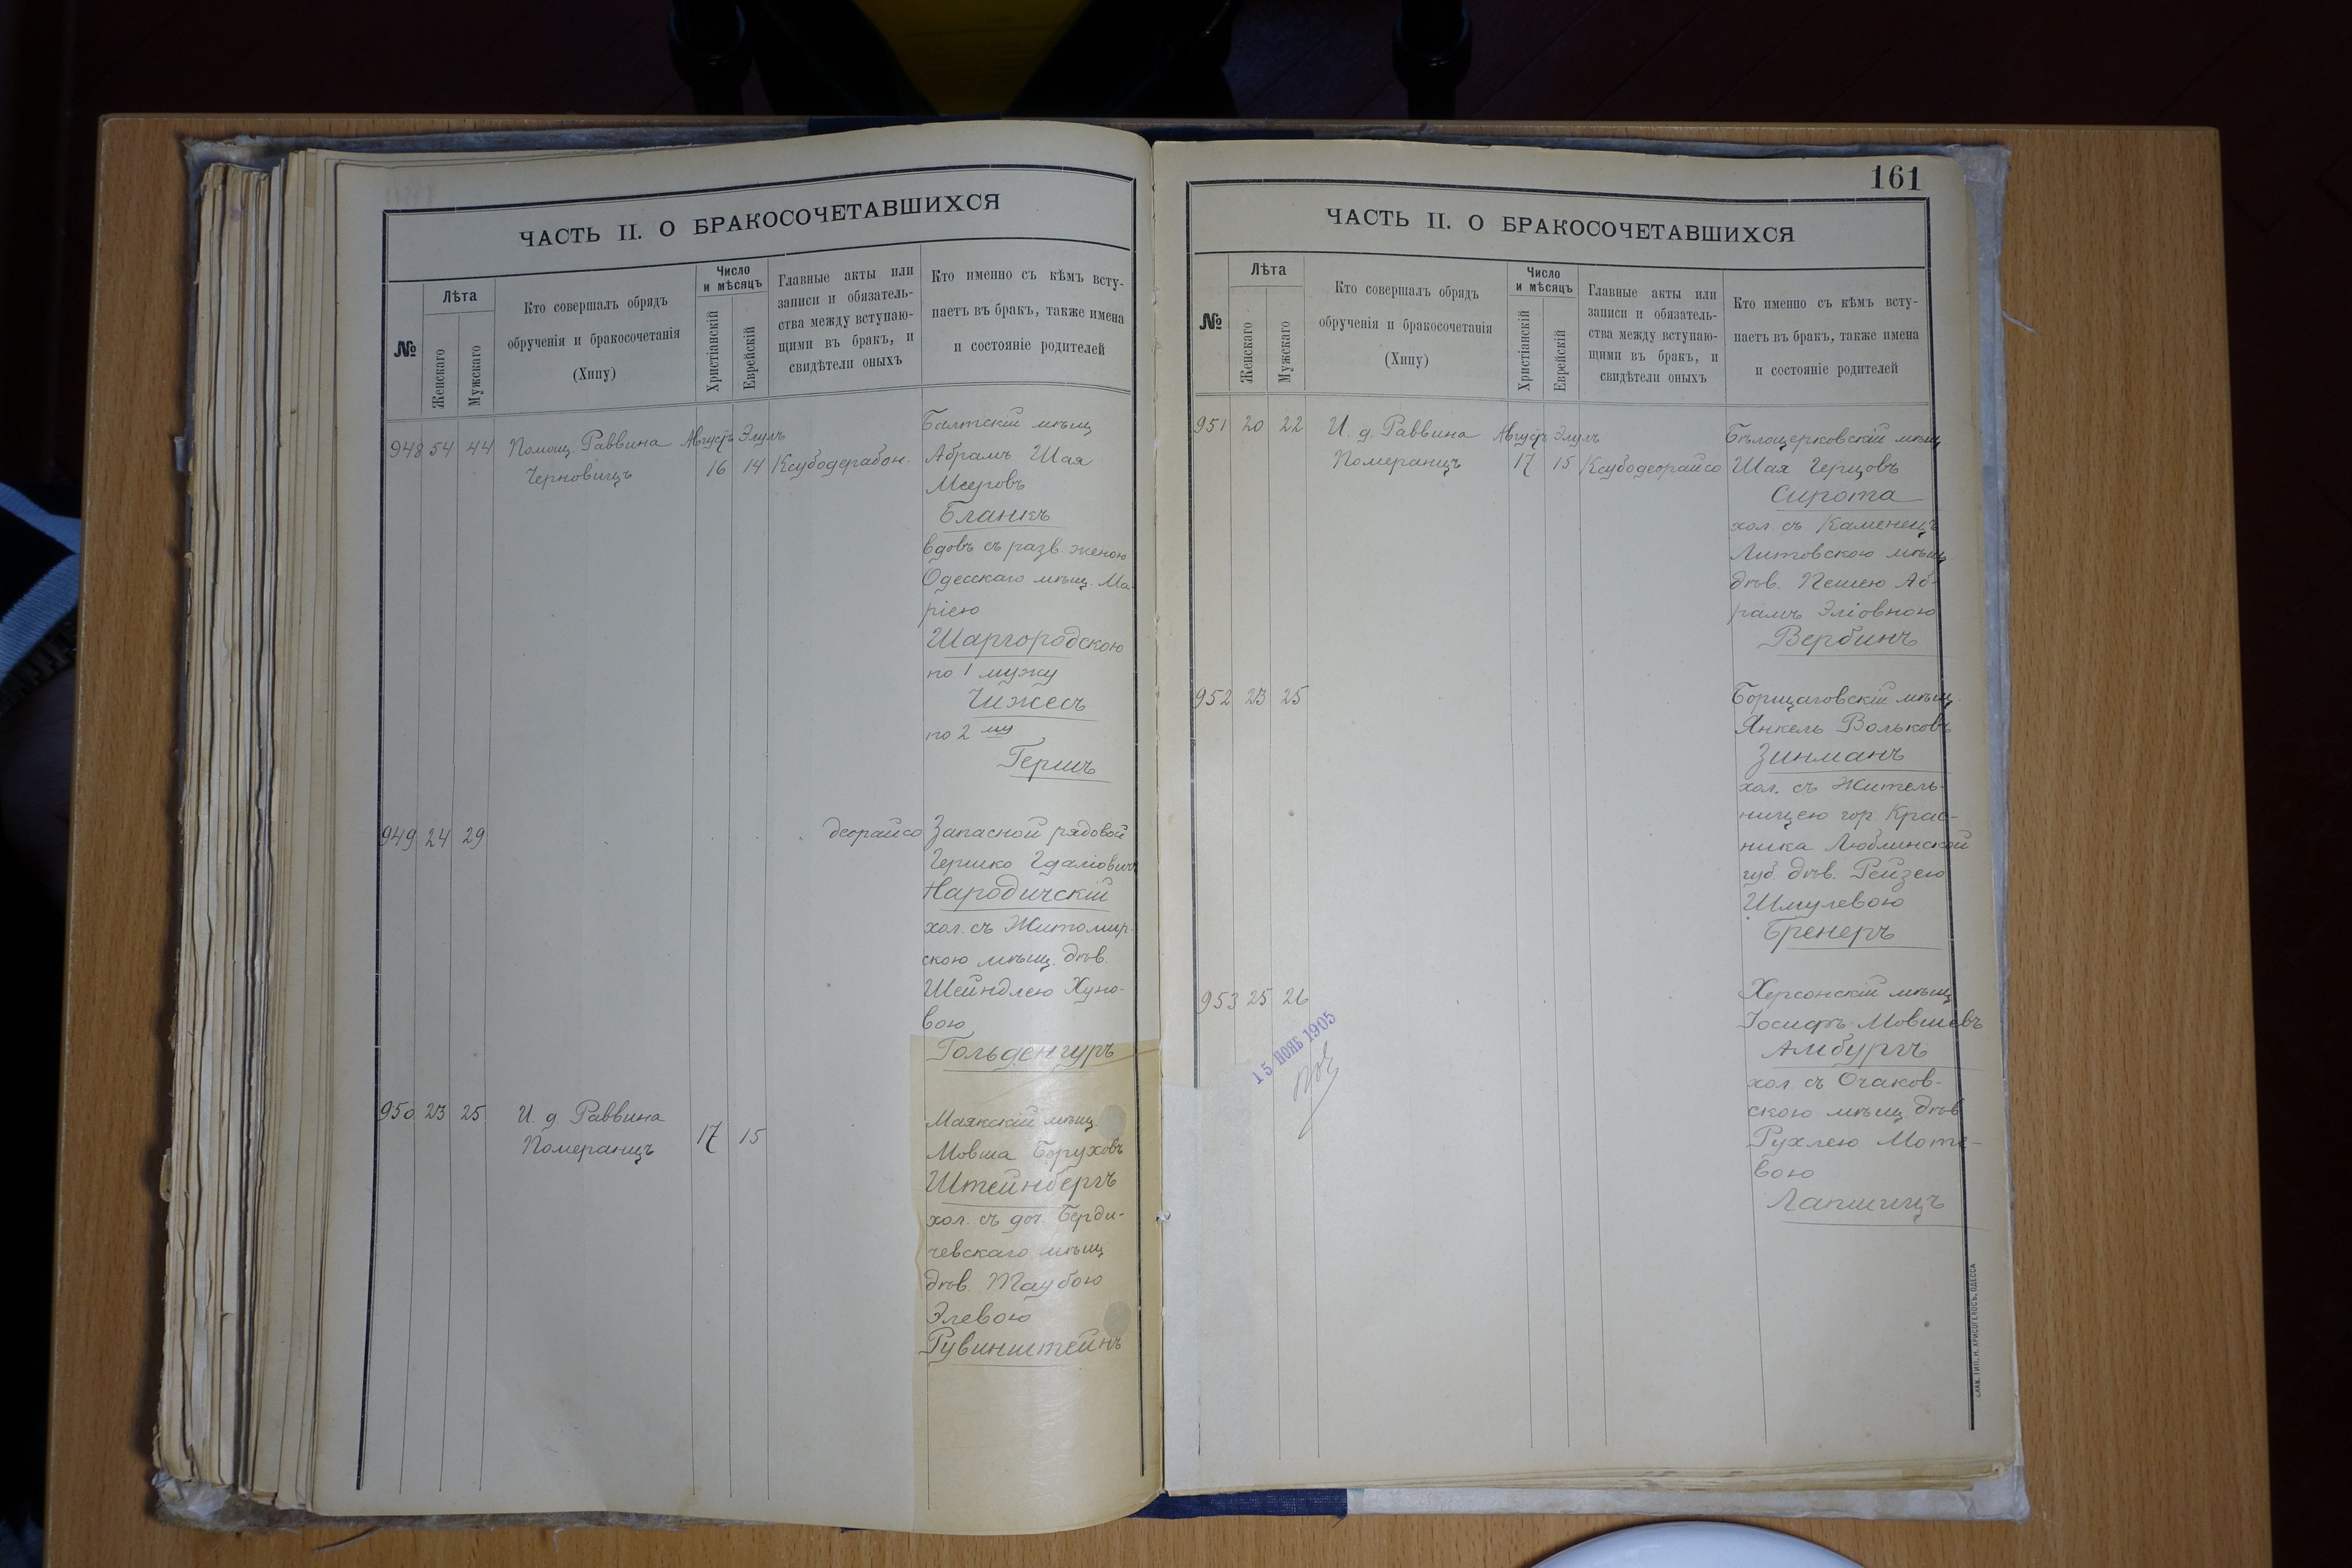 ЧАСТЬ II. О БРАКОСОЧЕТАВШИХСЯ
№
Лѣта
Женскаго
Мужскаго
Кто совершалъ обрядъ
обрученія и бракосочетанія
(Хипу)
Число
и мѣсяцъ
Христіанскій
Еврейскій
Главные акты или
записи и обязатель-
ства между вступаю-
щими въ бракъ, и
свидѣтели оныхъ
Кто именно съ кѣмъ всту-
паетъ въ бракъ, также имена
и состояніе родителей
948 54 44 Помощ. Раввина Августъ Элулъ
Черновицъ 16 14 Ксубодерабон.
Балтскій мѣщ
Абрамъ Шая
Мееровъ
Бланкъ
вдовъ съ разв. женою
Одесскаго мѣщ. Ма-
ріею
Шаргородскою
по 1 мужу
Чижесъ
по 2 му
Гершъ
949 24 29 деорайсо Запасной рядовой
Гершко Гдаліовичъ
Народичскій
хол. съ Житомир-
скою мѣщ. дѣв.
Шейндлею Хуно-
вою
Гольденгуръ
950 23 25 И. д. Раввина
Померанцъ 17 15
Маякскій мѣщ.
Мовша Боруховъ
Штейнбергъ
хол. съ доч. Берди-
чевскаго мѣщ
дѣв. Таубою
Элевою
Рувинштейнъ
161
ЧАСТЬ II. О БРАКОСОЧЕТАВШИХСЯ
№
Лѣта
Женскаго
Мужскаго
Кто совершалъ обрядъ
обрученія и бракосочетанія
(Хипу)
Число
и мѣсяцъ
Христіанскій
Еврейскій
Главные акты или
записи и обязатель-
ства между вступаю-
щими въ бракъ, и
свидѣтели оныхъ
Кто именно съ кѣмъ всту-
паетъ въ бракъ, также имена
и состояніе родителей
951 20 22 И. д. Раввина Августъ Элулъ
Померанцъ 17 15 Ксубодеорайсо
Бѣлоцерковскій мѣщ
Шая Герцовъ
Сирота
хол съ Каменецъ
Литовскою мѣщ
дѣв. Пешею Аб-
рамъ Эліовною
Вербинъ
952 23 25 Борщаговскій мѣщ.
Янкель Вольковъ
Зинманъ
хол. съ Житель-
ницею гор. Крас-
ника Люблинской
губ. дѣв. Рейзею
Шмулевою
Бренеръ
953 25 26 Херсонскій мѣщ
Іосифъ Мовшевъ
Амбургъ
хол. съ Очаков-
скою мѣщ. дѣв
Рухлею Моте-
вою
Лапшицъ
15 НОЯБ 1905
СЛАВ. ТИП. Н. ХРИСОГЕЛОСЪ, ОДЕССА